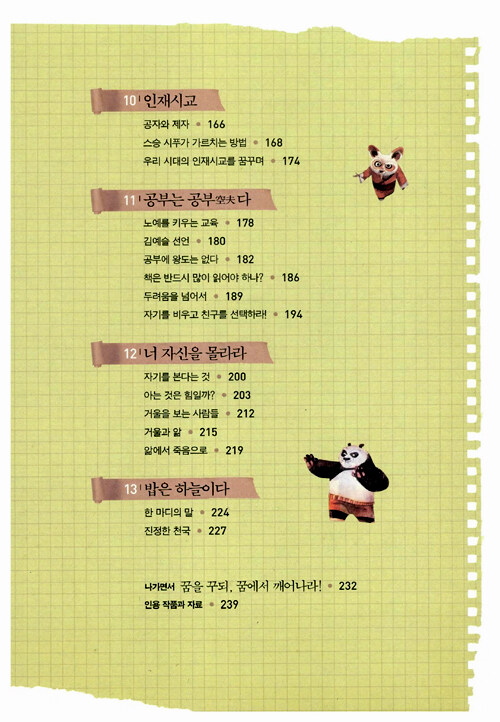 10 인재시교
공자와 제자 • 166
스승 시푸가 가르치는 방법 • 168
우리 시대의 인재시교를 꿈꾸며 • 174
11 공부는 공부空夫다
노예를 키우는 교육 • 178
김예슬 선언 • 180
공부에 왕도는 없다 • 182
책은 반드시 많이 읽어야 하나? • 186
두려움을 넘어서 • 189
자기를 비우고 친구를 선택하라! • 194
12 너 자신을 몰라라
자기를 본다는 것 • 200
아는 것은 힘일까? • 203
거울을 보는 사람들 • 212
거울과 앎 • 215
앎에서 죽음으로 • 219
13 밥은 하늘이다
한 마디의 말 • 224
진정한 천국 • 227
나가면서 꿈을 꾸되, 꿈에서 깨어나라! • 232
인용 작품과 자료 • 239